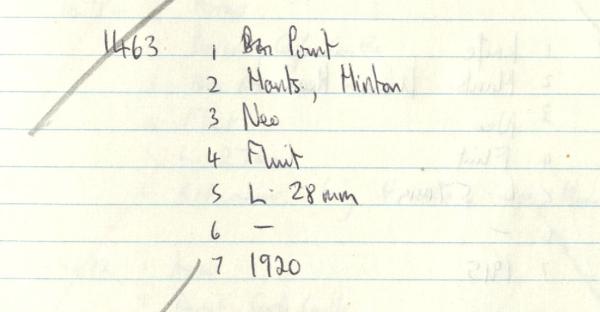 1463 1 Point
2 Hants, Hinton
3 Neo
4 Flint
5 L. 28mm
6 —
7 1920